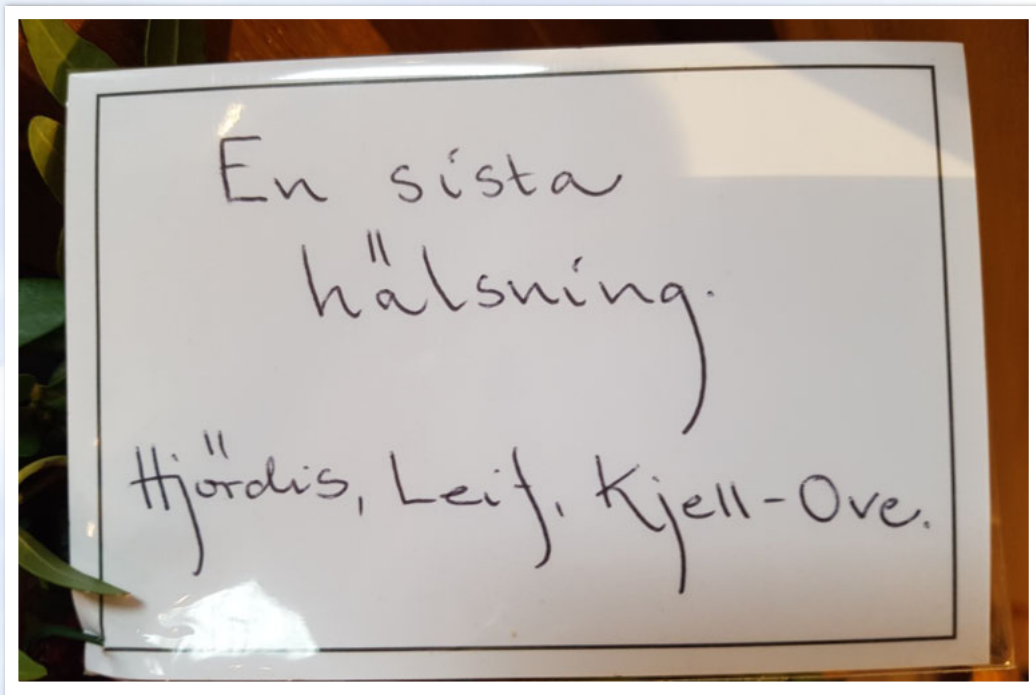 En sista
hälsning.
Hjördis, Leif, Kjell-Ove.